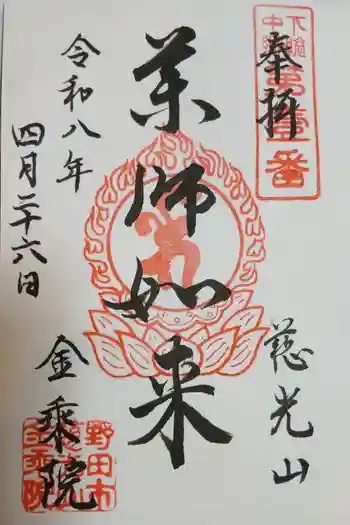 奉拝
慈光山
薬師如来
令和八年
四月二十六日
金乗院
下総
中
第壹番
野田市
慈光山
金乗院